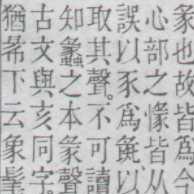 象也故皆爲
心部之惾皆从
誤以豕爲彘以
取其聲。不可讀
知蠡之本篆聲
古文與亥同字。
猶㣇下云象髦